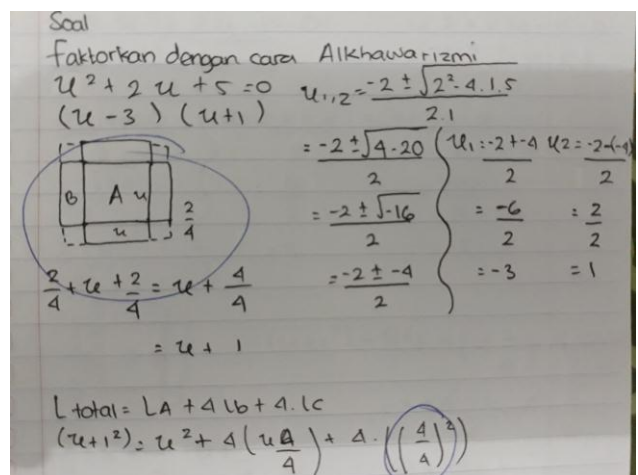 Soal
faktorkan dengan cara Alkhawarizmi
x² + 2x + 5 = 0
(x - 3) (x + 1)
B A x
x
2/4
2/4 + x + 2/4 = x + 4/4
= x + 1
x₁,₂ = (-2 ± √(2² - 4.1.5))/2.1
= (-2 ± √(4 - 20))/2
= (-2 ± √-16)/2
= (-2 ± -4)/2
x₁ = (-2 + -4)/2 x₂ = (-2 - (-4))/2
= -6/2 = 2/2
= -3 = 1
L total = LA + 4 Lb + 4. Lc
(x + 1²) = x² + 4 (x 4/4) + 4. ((4/4)²)